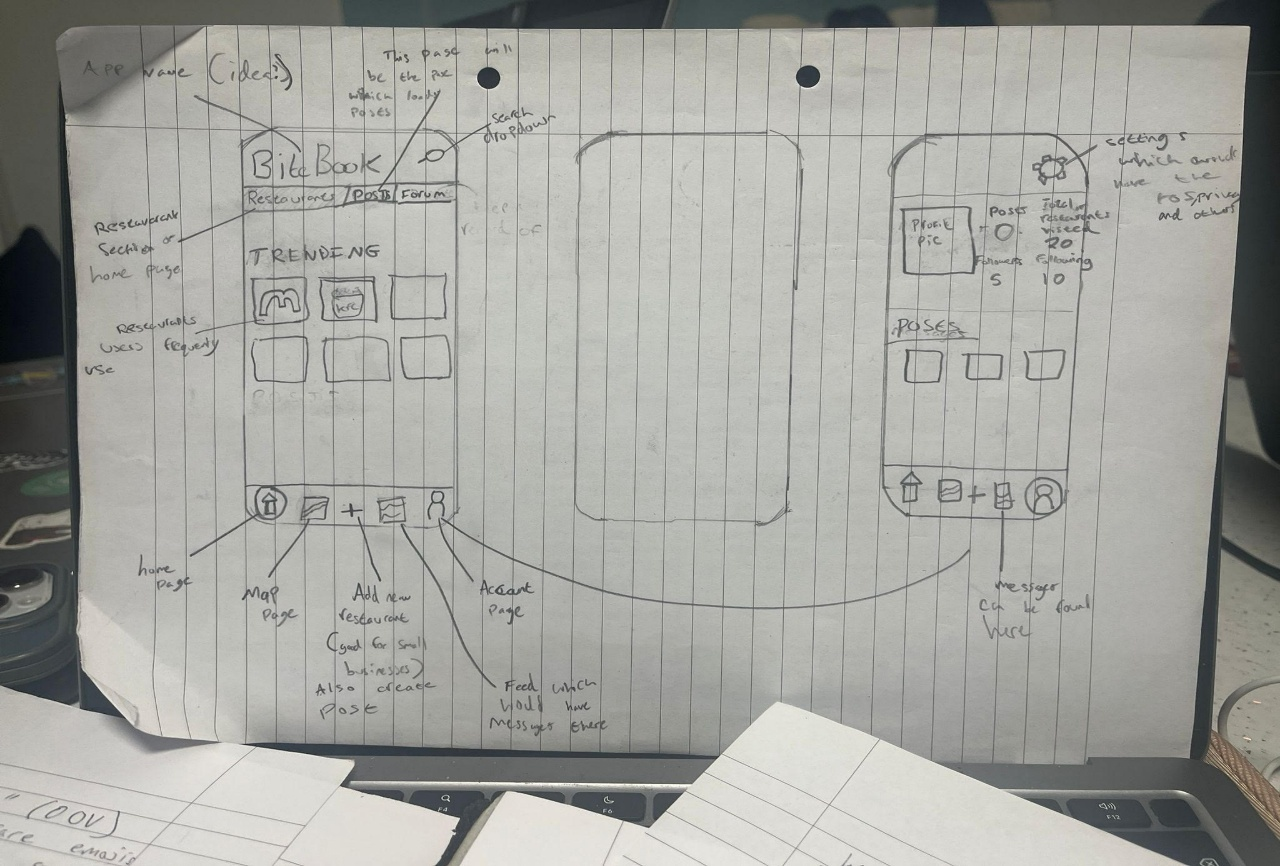 App name (idea?)
This page will
be the pge
which loads
posts
search
dropdown
BiteBook
Restaurants
Posts
Forum
Restaurant
Section or
home page
TRENDING
KFC
Restaurants
users frequently
use
home
page
Map
page
Add new
restaurant
(good for small
businesses)
Also create
post
Feed which
would have
messages there
Account
page
settings
which would
have the
tos, privacy
and others
Profile
pic
Posts
0
Total
restaurants
visited
20
Followers
5
Following
10
POSTS
messages
can be found
here
" (OOV)
emojis
F4
F6
F12